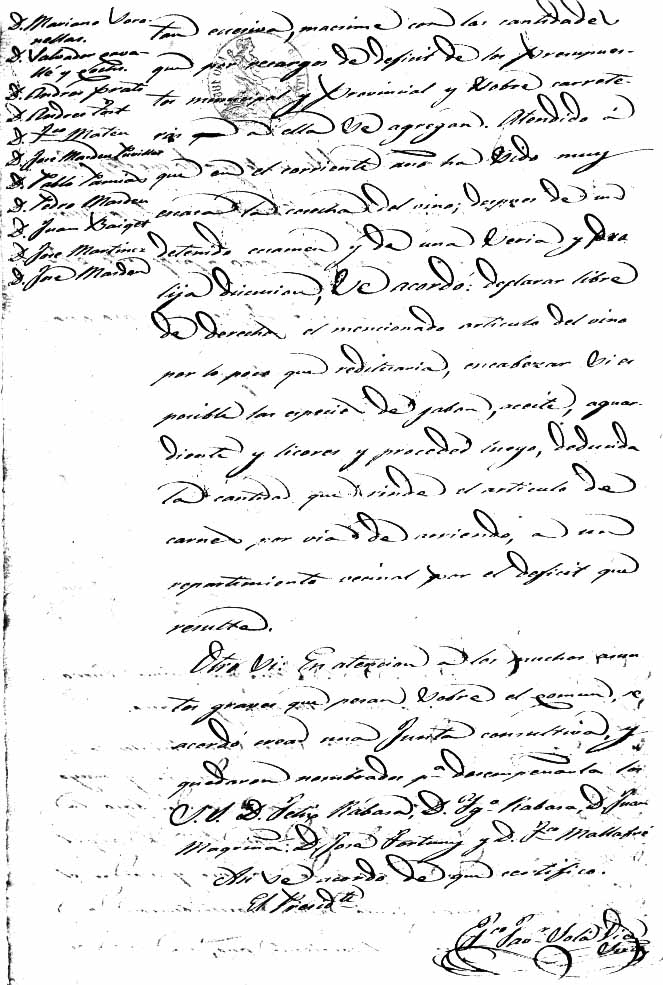 D. Mariano Soro-
nellas.
D. Salvador Cava-
llé y
D. Andres Prats
D. Andres Fort
D. Fco Mateu
D. José Mardeu
D. Pablo
D. Pedro Mardeu
D. Juan Baiget
D. José Martinez
D. José Mardeu
tan excesiva, macsime con las cantidades
que por recargos de deficit de los Presupues-
tos municipal y Provincial y sobre carrete-
ras a ella se agregan. Atendido á
que en el corriente año ha sido muy
escasa la cosecha del vino; despues de un
detenido ecsamen y de una seria y pro
lija discusion, se acordó: declarar libre
de derechos el mencionado articulo del vino
por lo poco que redituaria, encabezar si es
posible las especies de jabon, aceite, aguar-
diente y licores y proceder luego, deducida
la cantidad que rinde el articulo de
carnes por via de arriendo, a un
repartimiento vecinal por el deficit que
resulte.
Otro si: En atencion a los muchos asun
tos graves que pesan sobre el comun, se
acordó crear una Junta consultiva, y
quedaron nombrados pa desempeñarla los
S.S. D. Felix Rabasa, D. Igo Rabasa, D. Juan
Magriñá, D. José Fortuny y D. Fco Mallafré
Asi se acordó de que certifico.
El Presidte
Fco Solá